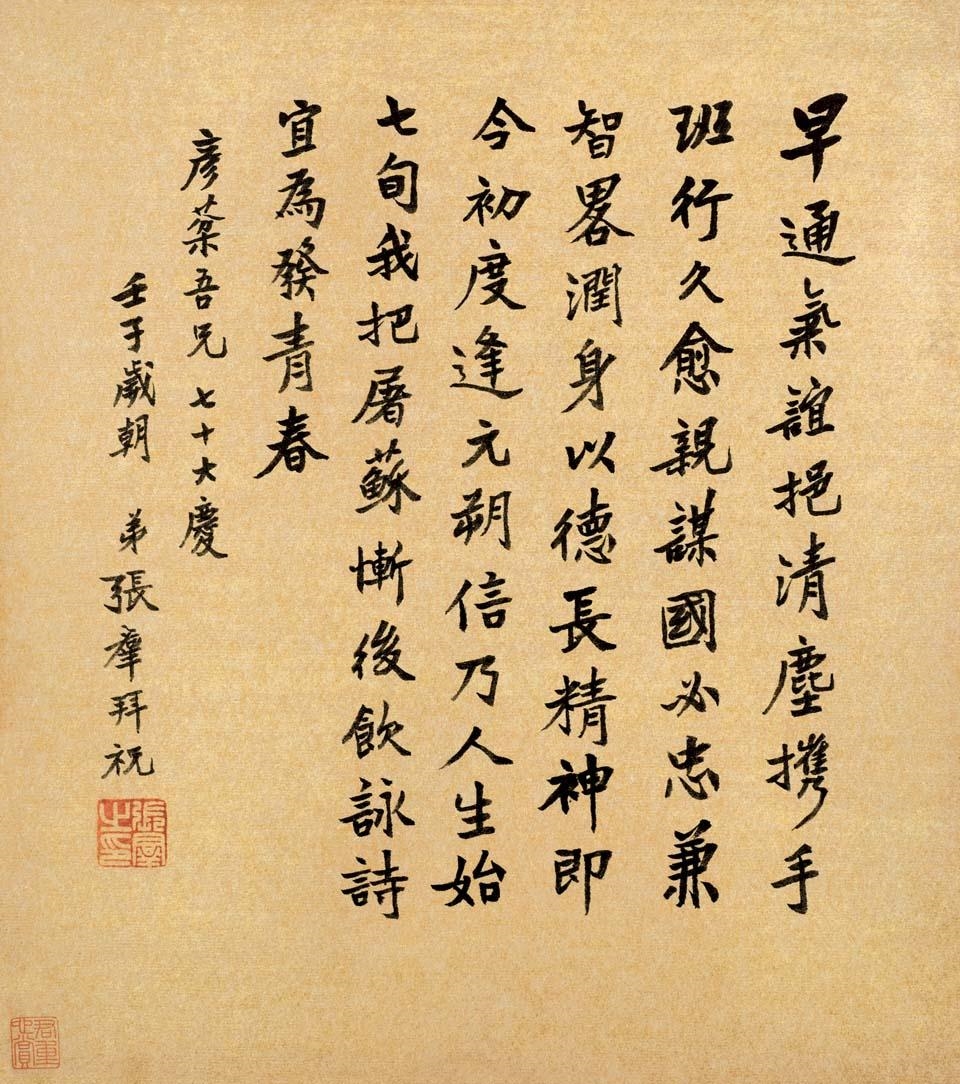 早通氣誼挹清塵攜手
班行久愈親謀國必忠兼
智畧潤身以德長精神即
今初度逢元朔信乃人生始
七旬我把屠蘇慚後飲詠詩
宜為發青春
彥棻吾兄七十大慶
壬子歲朝 弟張羣拜祝
張羣之印